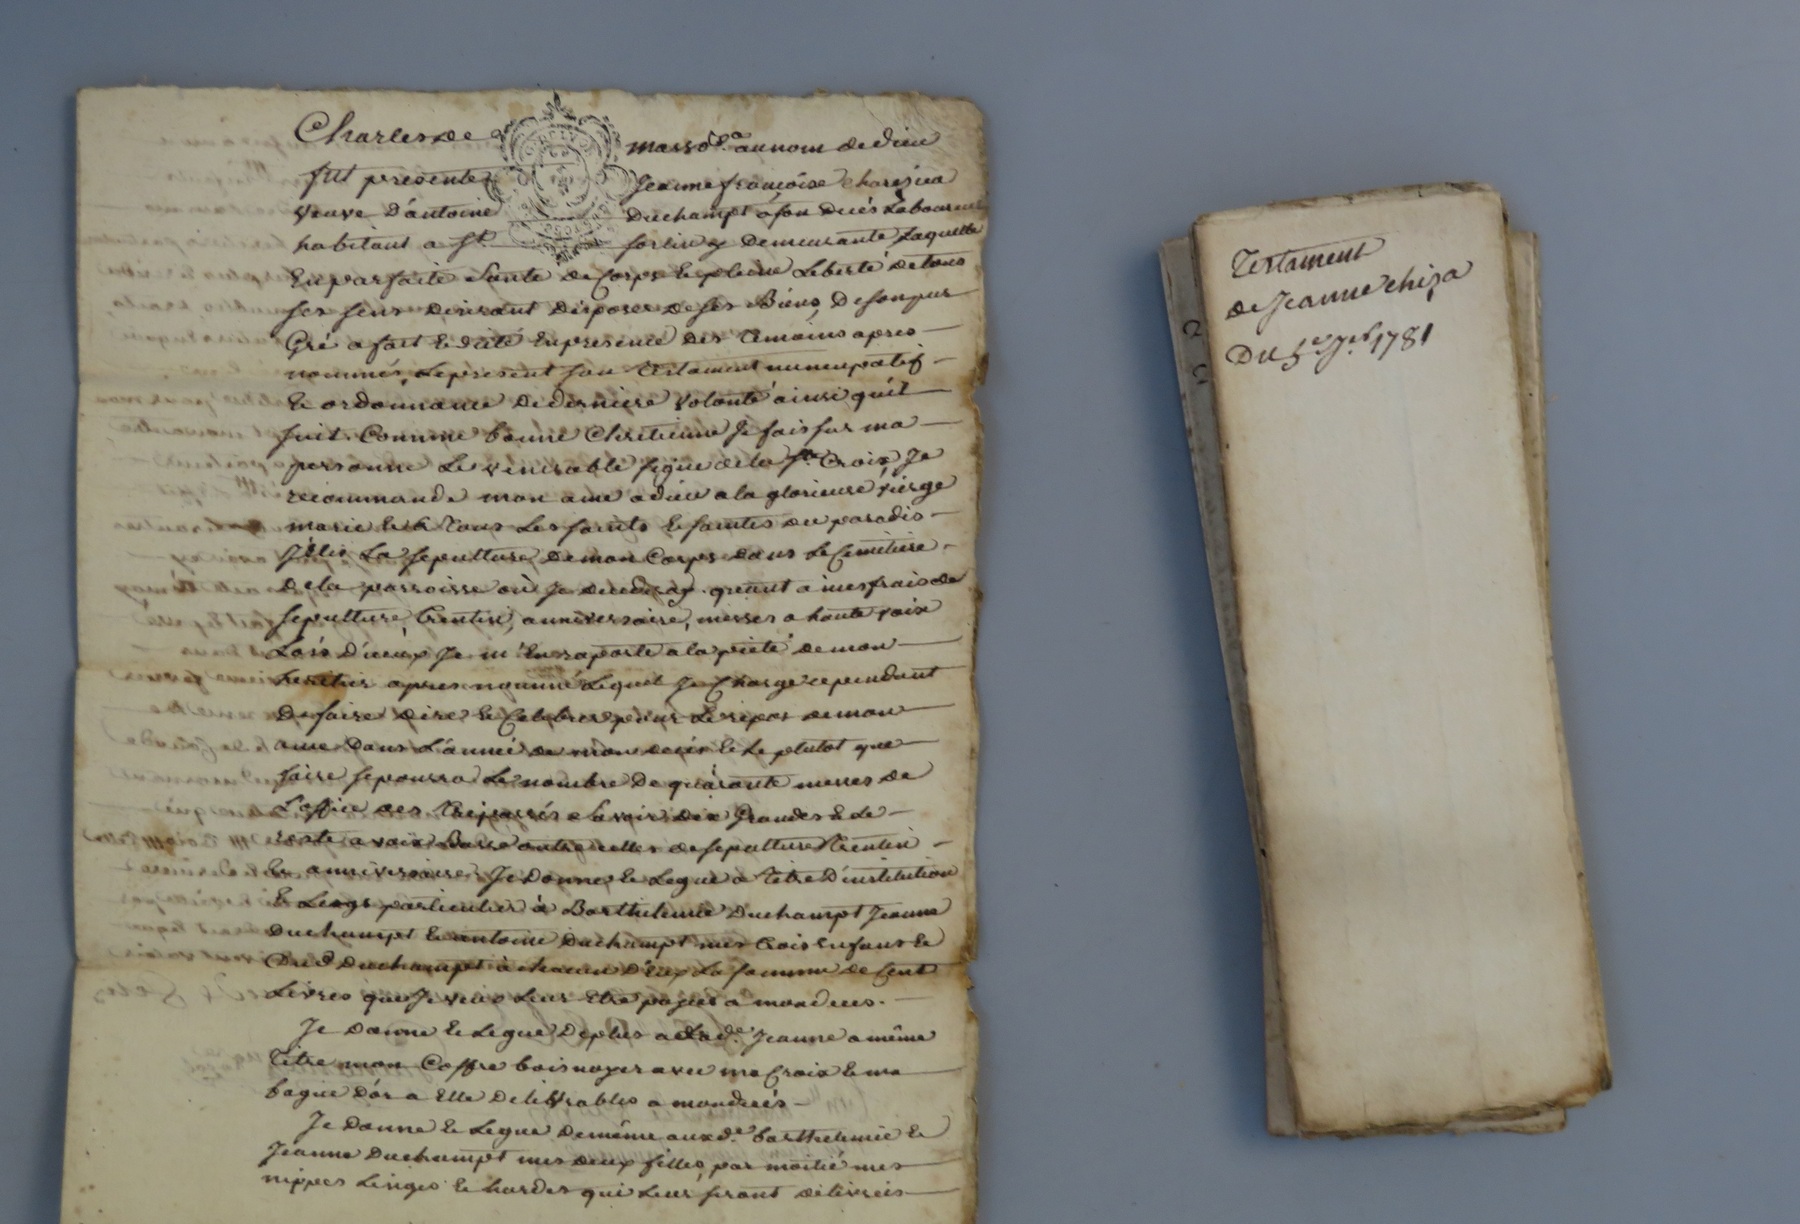 Charles de masso da. au nom de dieu
fut presente Jeanne françoise
veuve D'antoine Duchampt a son decés Laboureur
habitant a St. forlieux y Demeurante Laquelle
En parfaite Santé de Corps Et pleine Liberté de tous
ses sens Desirant Disposer de ses Biens, De son pur
Gré a fait Et dicté En presence Des temoins apres
nommés, Le present son testament nuncupatif
Et ordonnance De derniere volonté ainsi quil
suit. Comme bonne Chretienne Je fais sur ma
personne Le venerable signe de la Ste Croix, Je
recommande mon ame a dieu a la glorieuse vierge
marie Et a tous Les saints Et saintes du paradis
J'Elis La sepulture De mon Corps dans Le Cemitiere
De la parroisse où Je decederay. quant a mes frais de
sepulture, trentin, anniversaire, messes a haute voix
Lors D'iceux Je m'En raporte a la pieté de mon
heritier apres nommé Lequel Je Charge cependant
De faire Dire Et Celebrer pour Le repos de mon
ame Dans L'année de mon decés Et Le plutot que
faire se pourra Le nombre De quarante messes de
L'office des trépassés Savoir dix Grandes Et Le
reste a voix Basse outre celles de sepulture trentin
Et anniversaire. Je Donne Et Legue a titre D'institution
Et Legs particulier à Barthelemie Duchampt Jeanne
Duchampt Et antoine Duchampt mes trois Enfans Et
Dud. Duchampt à chacun D'Eux La somme de Cent
Livres que Je veux Leur Etre payés a mon deces.
Je Donne Et Legue De plus a Lade. Jeanne a même
titre mon Coffre bois noyer avec ma Croix Et ma
bague D'or a Elle Delivrables a mon decés
Je Donne Et Legue De même auxd. barthelemie Et
Jeanne Duchampt mes deux filles, par moitié mes
nippes Linges Et hardes qui Leur seront délivrés
Testament
de Jeanne chiza
Du 5e 7bre 1781